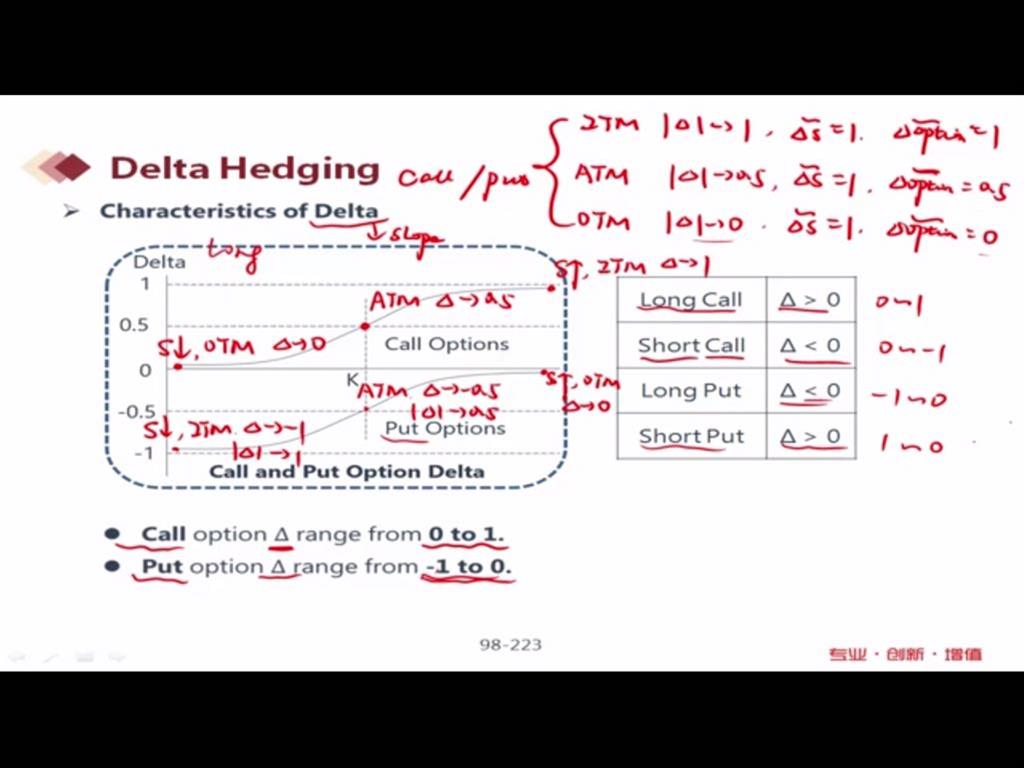 Delta Hedging
call / put
ITM |Δ|→1, ΔS=1. Δoption=1
ATM |Δ|→0.5, ΔS=1. Δoption=0.5
OTM |Δ|→0. ΔS=1. Δoption=0
➢ Characteristics of Delta
↓ slope
Long
Delta
1
0.5
0
-0.5
-1
S↑, ITM Δ→1
ATM Δ→0.5
S↓, OTM Δ→0
Call Options
K
ATM Δ→-0.5
|Δ|→0.5
S↑, OTM
Δ→0
Put Options
S↓, ITM Δ→-1
|Δ|→1
Call and Put Option Delta
Long Call Δ > 0 0~1
Short Call Δ < 0 0~-1
Long Put Δ < 0 -1~0
Short Put Δ > 0 1~0
● Call option Δ range from 0 to 1.
● Put option Δ range from -1 to 0.
98-223
专业·创新·增值